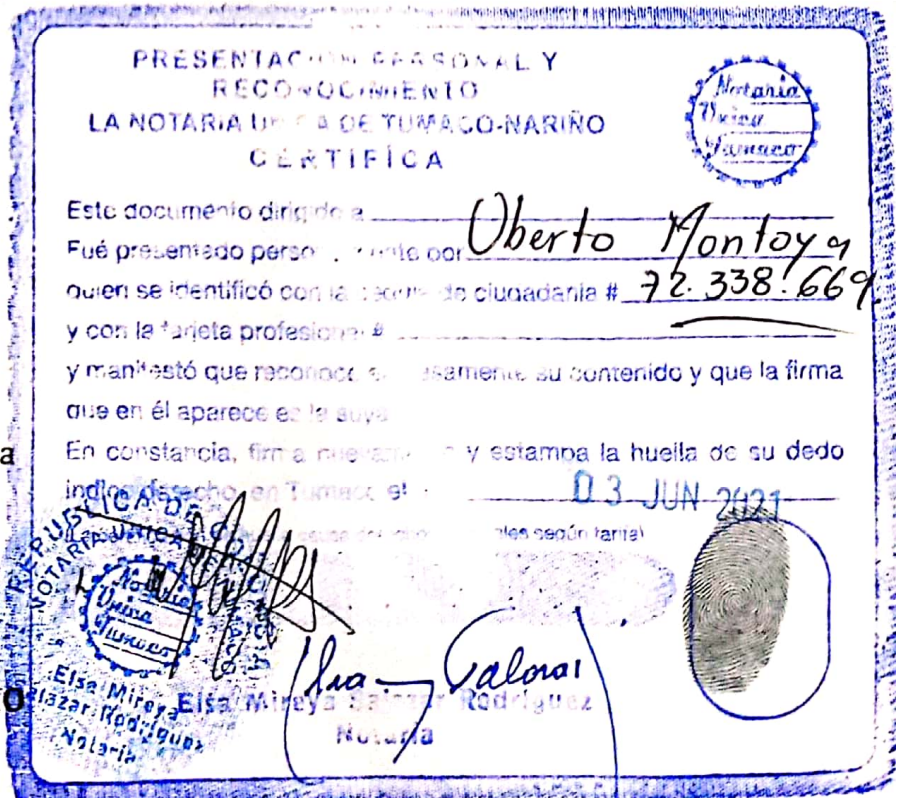 PRESENTACION PERSONAL Y
RECONOCIMIENTO
LA NOTARIA UNICA DE TUMACO-NARIÑO
CERTIFICA
Notaria
Unica
Tumaco
Este documento dirigido a
Fué presentado personalmente por Uberto Montoya
quien se identificó con la cedula de ciudadania # 72.338.669
y con la tarjeta profesional #
y manifestó que reconoce expresamente su contenido y que la firma
que en él aparece es la suya
En constancia, firma nuevamente y estampa la huella de su dedo
indice derecho, en Tumaco el 03 JUN 2021
según tarifa)
REPUBLICA DE
NOTARIA UNICA
Notaria
Unica
Tumaco
Elsa Mireya
Salazar Rodriguez
Notaria
Elsa Mireya Salazar Rodriguez
Notaria
a
O